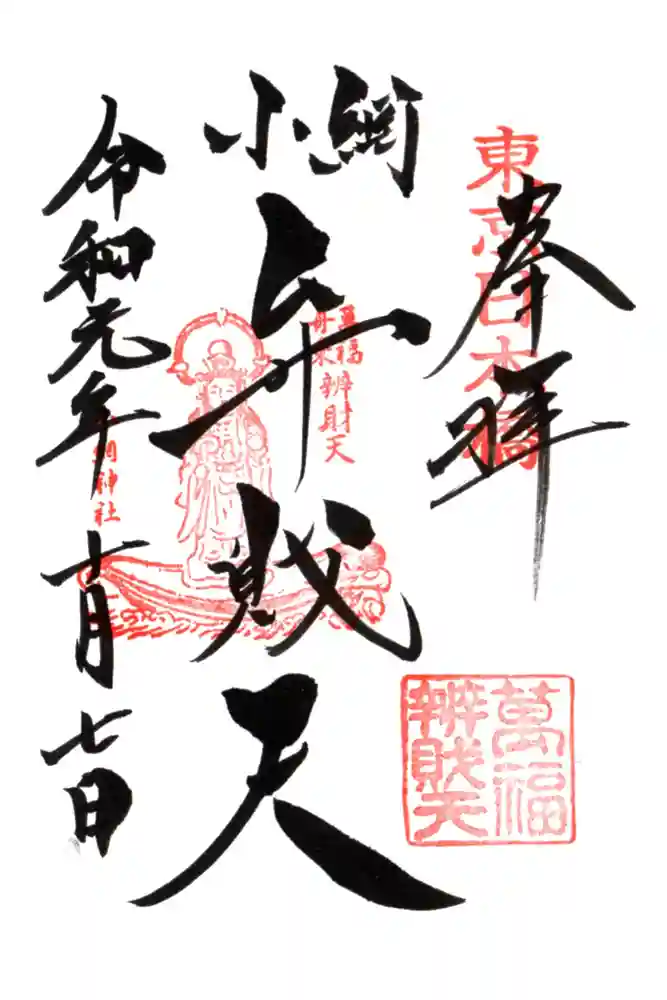 東京日本橋
奉拝
小網
弁財天
萬福
舟乗弁財天
小網神社
令和元年十月七日
萬福
辨財天